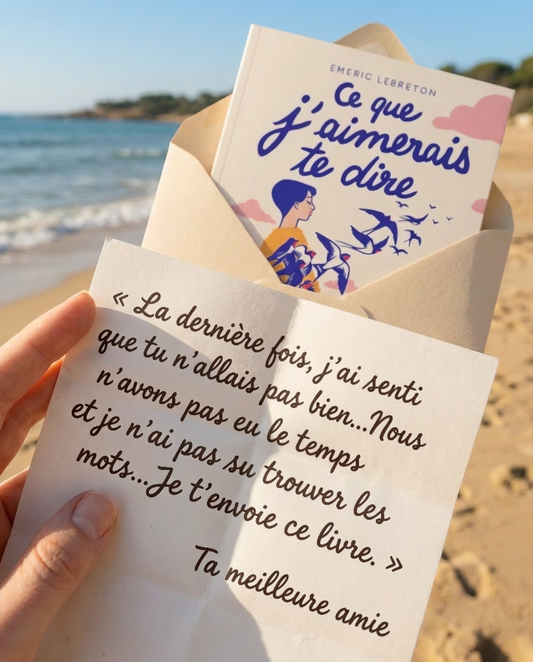 EMERIC LEBRETON
Ce que
j'aimerais
te dire
« La dernière fois, j'ai senti
que tu n'allais pas bien...Nous
n'avons pas eu le temps
et je n'ai pas su trouver les
mots...Je t'envoie ce livre. »
Ta meilleure amie